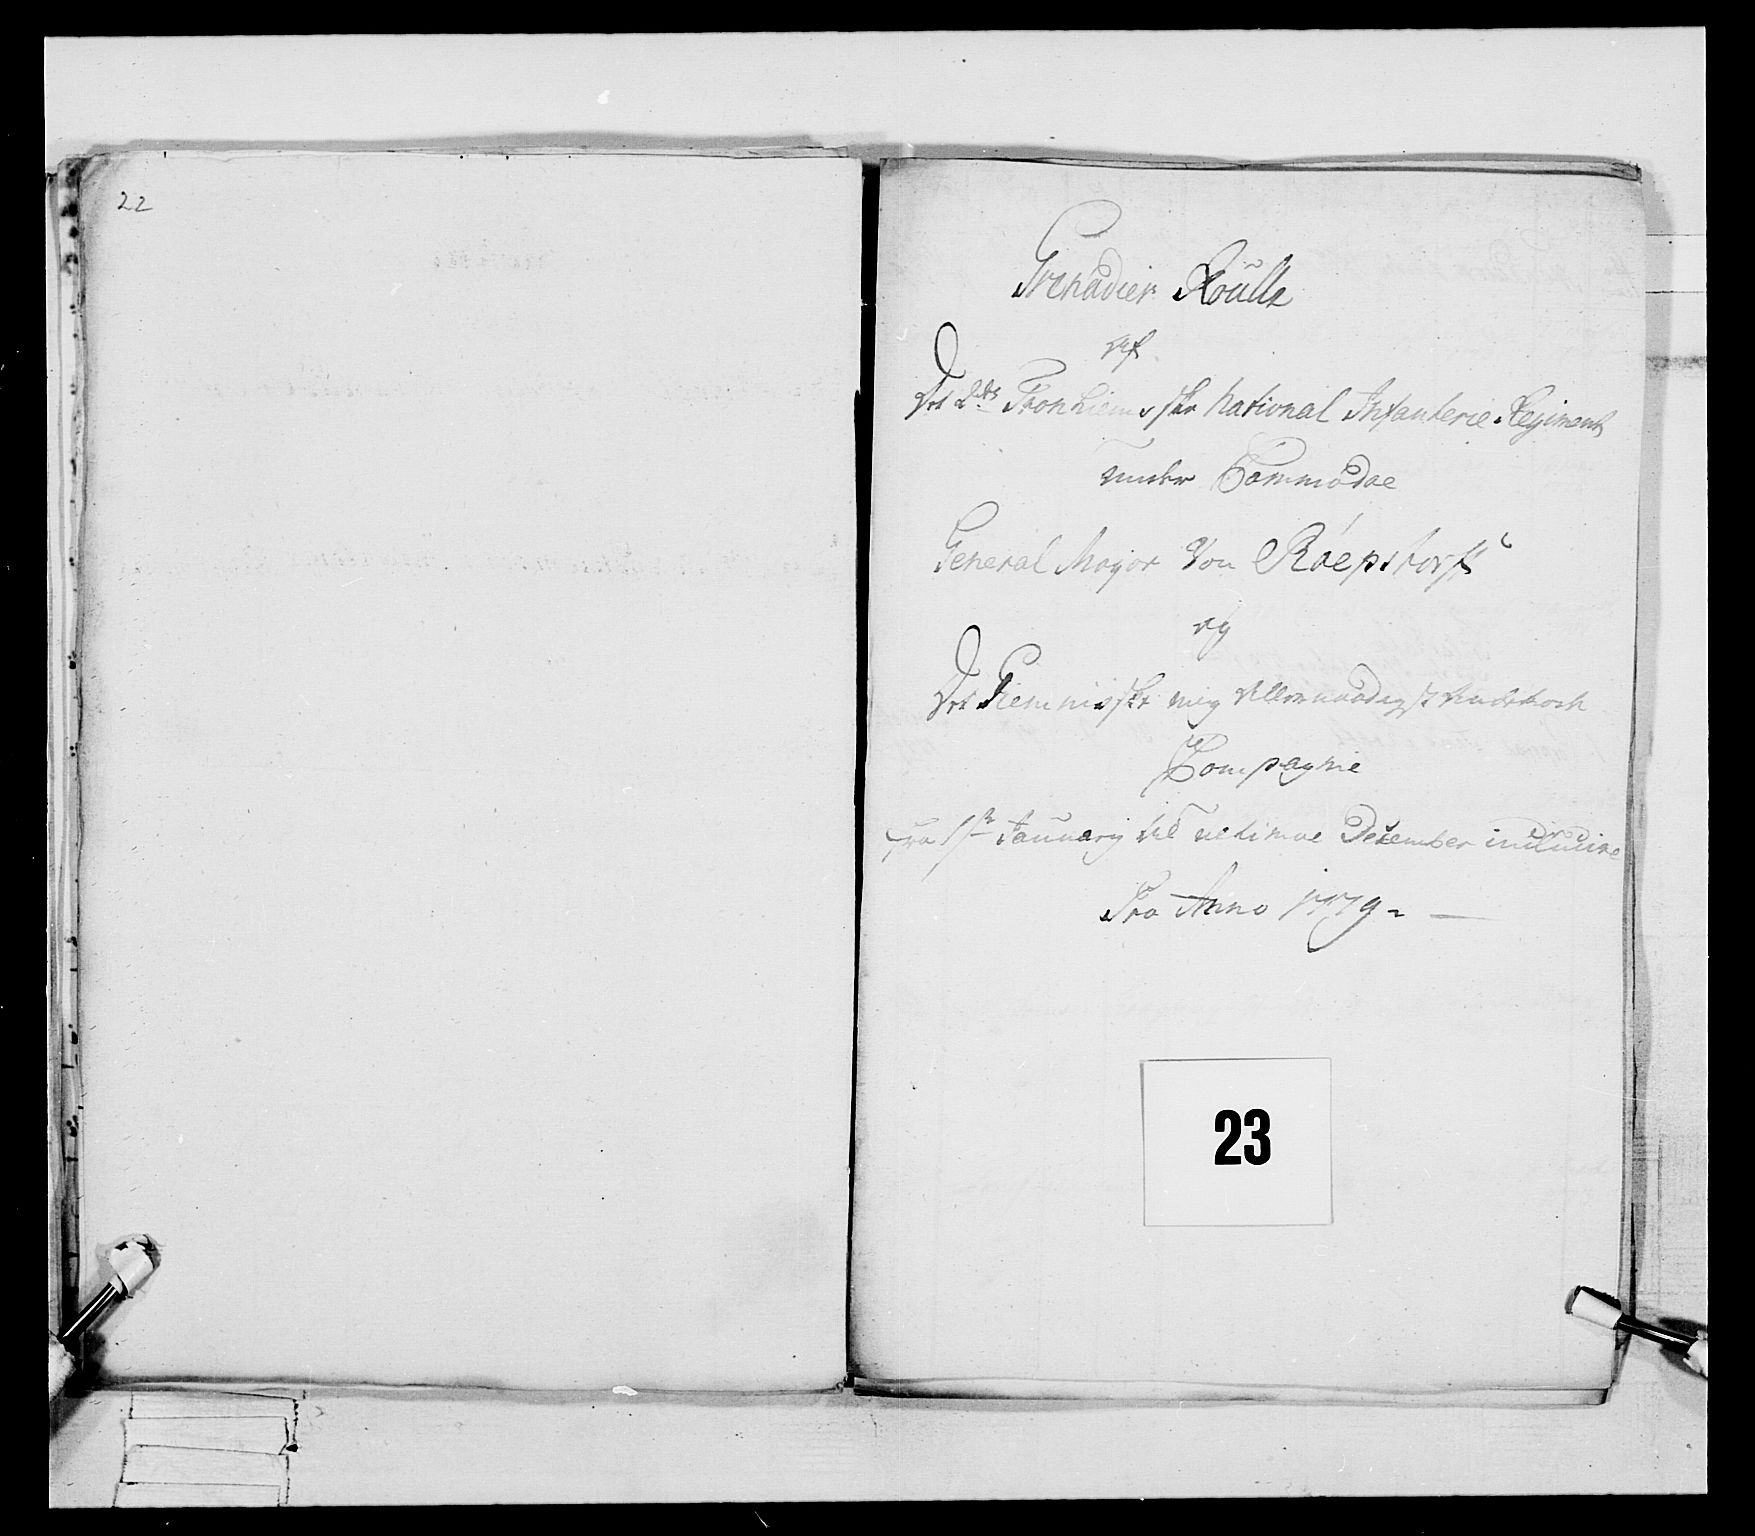 22
Grenadier Roulle
Af
Det 2det Tronhiemske National Infanterie Regiment
under Commodae
General Major Von Röepstorff
og
Det mig Allernaadigst
Compagnie
fra 1ste January til ultimae December incluive
Pro Anno 1779
23